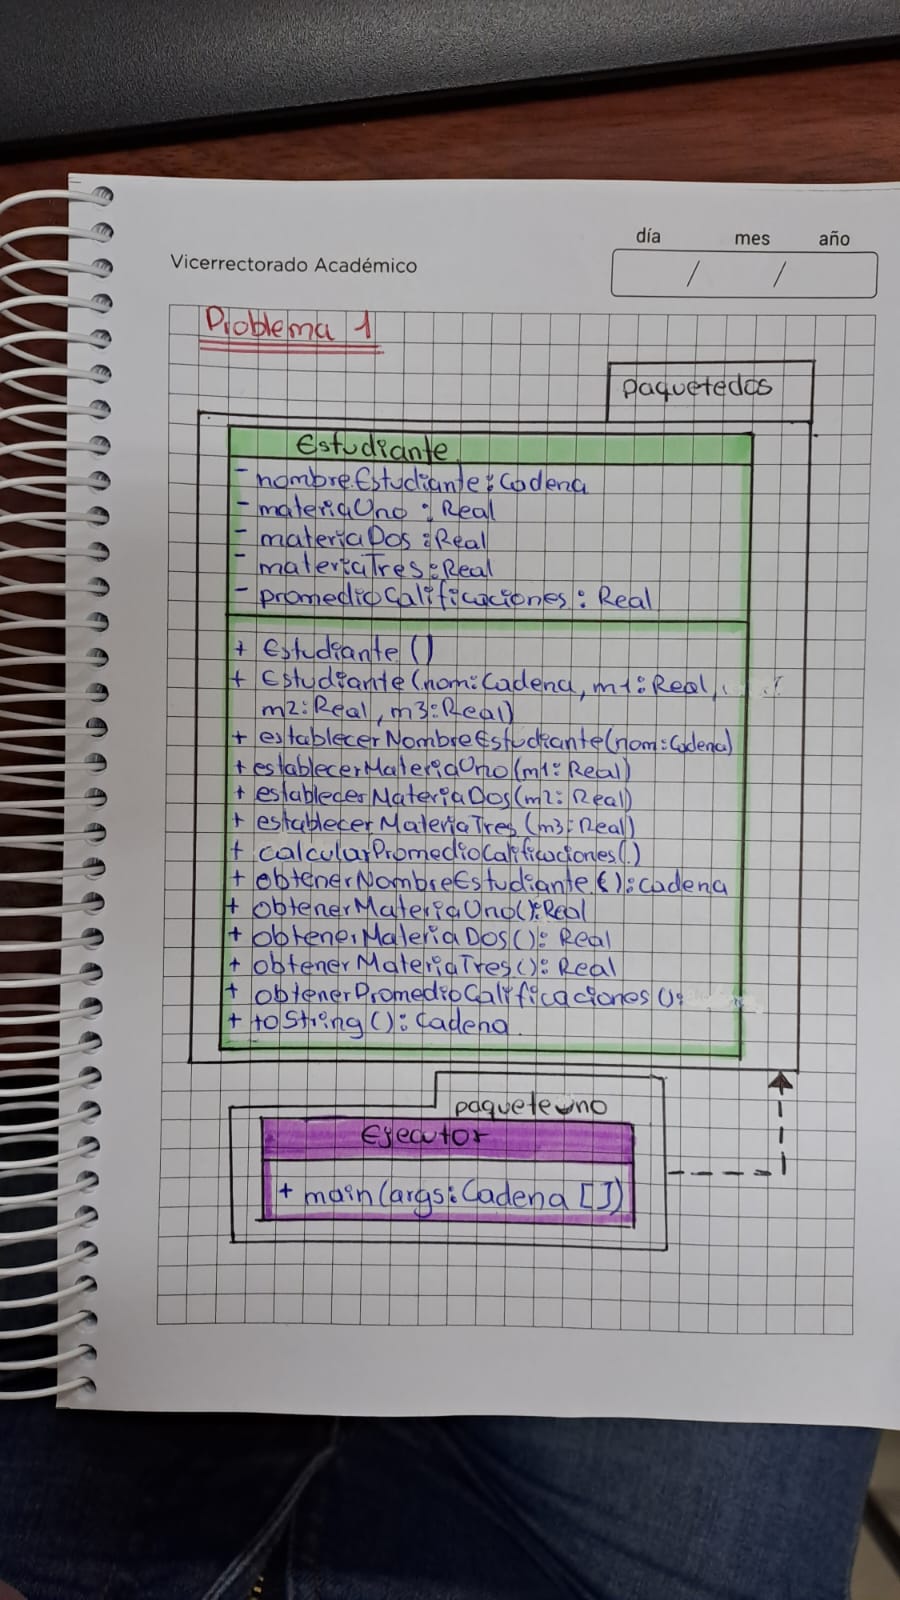 día mes año
Vicerrectorado Académico
/ /
Problema 1
paquetedos
Estudiante
- nombreEstudiante: Cadena
- materiaUno : Real
- materiaDos : Real
- materiaTres : Real
- promedioCalificaciones : Real
+ Estudiante ()
+ Estudiante (nom: Cadena, m1: Real,
m2: Real, m3: Real)
+ establecerNombreEstudiante(nom: Cadena)
+ establecerMateriaUno (m1: Real)
+ establecerMateriaDos(m2: Real)
+ establecerMateriaTres (m3: Real)
+ calcularPromedioCalificaciones()
+ obtenerNombreEstudiante (): cadena
+ obtenerMateriaUno(): Real
+ obtenerMateriaDos(): Real
+ obtenerMateriaTres(): Real
+ obtenerPromedioCalificaciones():
+ toString(): Cadena
paqueteuno
Ejecutor
+ main(args: Cadena [])